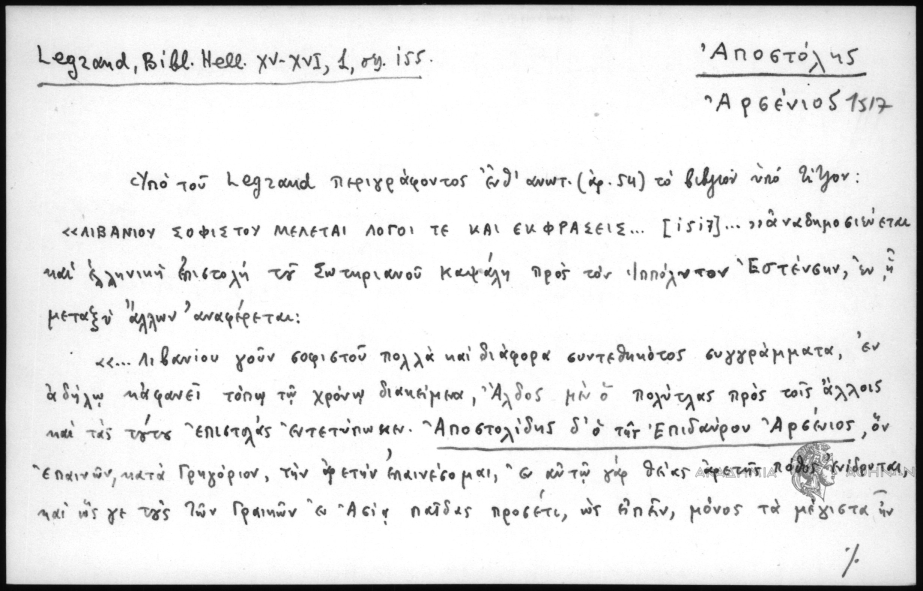 Legrand, Bibl. Hell. XV-XVI, 1, σημ. 155.
Ἀποστόλης
Ἀρσένιος 1517
Ὑπὸ τοῦ Legrand περιγράφοντος ἔνθ' ἀνωτ. (ἀρ. 54) τὸ βιβλίον ὑπὸ τίτλον:
«ΛΙΒΑΝΙΟΥ ΣΟΦΙΣΤΟΥ ΜΕΛΕΤΑΙ ΛΟΓΟΙ ΤΕ ΚΑΙ ΕΚΦΡΑΣΕΙΣ... [1517]...» ἀναδημοσιεύεται
καὶ ἑλληνικὴ ἐπιστολὴ τοῦ Σωτηριανοῦ Καψάλη πρὸς τὸν Ἱππόλυτον Ἐστένσην, ἐν ᾗ
μεταξὺ ἄλλων ἀναφέρεται:
«... Λιβανίου γοῦν σοφιστοῦ πολλὰ καὶ διάφορα συντεθηκότος συγγράμματα, ἐν
ἀδήλῳ κἀφανεῖ τόπῳ τῷ χρόνῳ διακείμενα, Ἄλδος μὲν ὁ πολύτλας πρὸς τοῖς ἄλλοις
καὶ τὰς τούτου ἐπιστολὰς ἐντετύπωκεν. Ἀποστολίδης δ' ὁ τῆς Ἐπιδαύρου Ἀρσένιος, ὃν
ἐπαινῶν, κατὰ Γρηγόριον, τὴν ἀρετὴν ἐπαινέσομαι, ἐν αὐτῷ γὰρ θείας ἀρετῆς πόθος ἐνίδρυται,
καὶ ὥς γε τοὺς τῶν Γραικῶν ἐν Ἀσίᾳ παῖδας προσέτι, ὡς εἰπεῖν, μόνος τὰ μέγιστα ἦν
ΑΚΑΔΗΜΙΑ ΑΘΗΝΩΝ
%